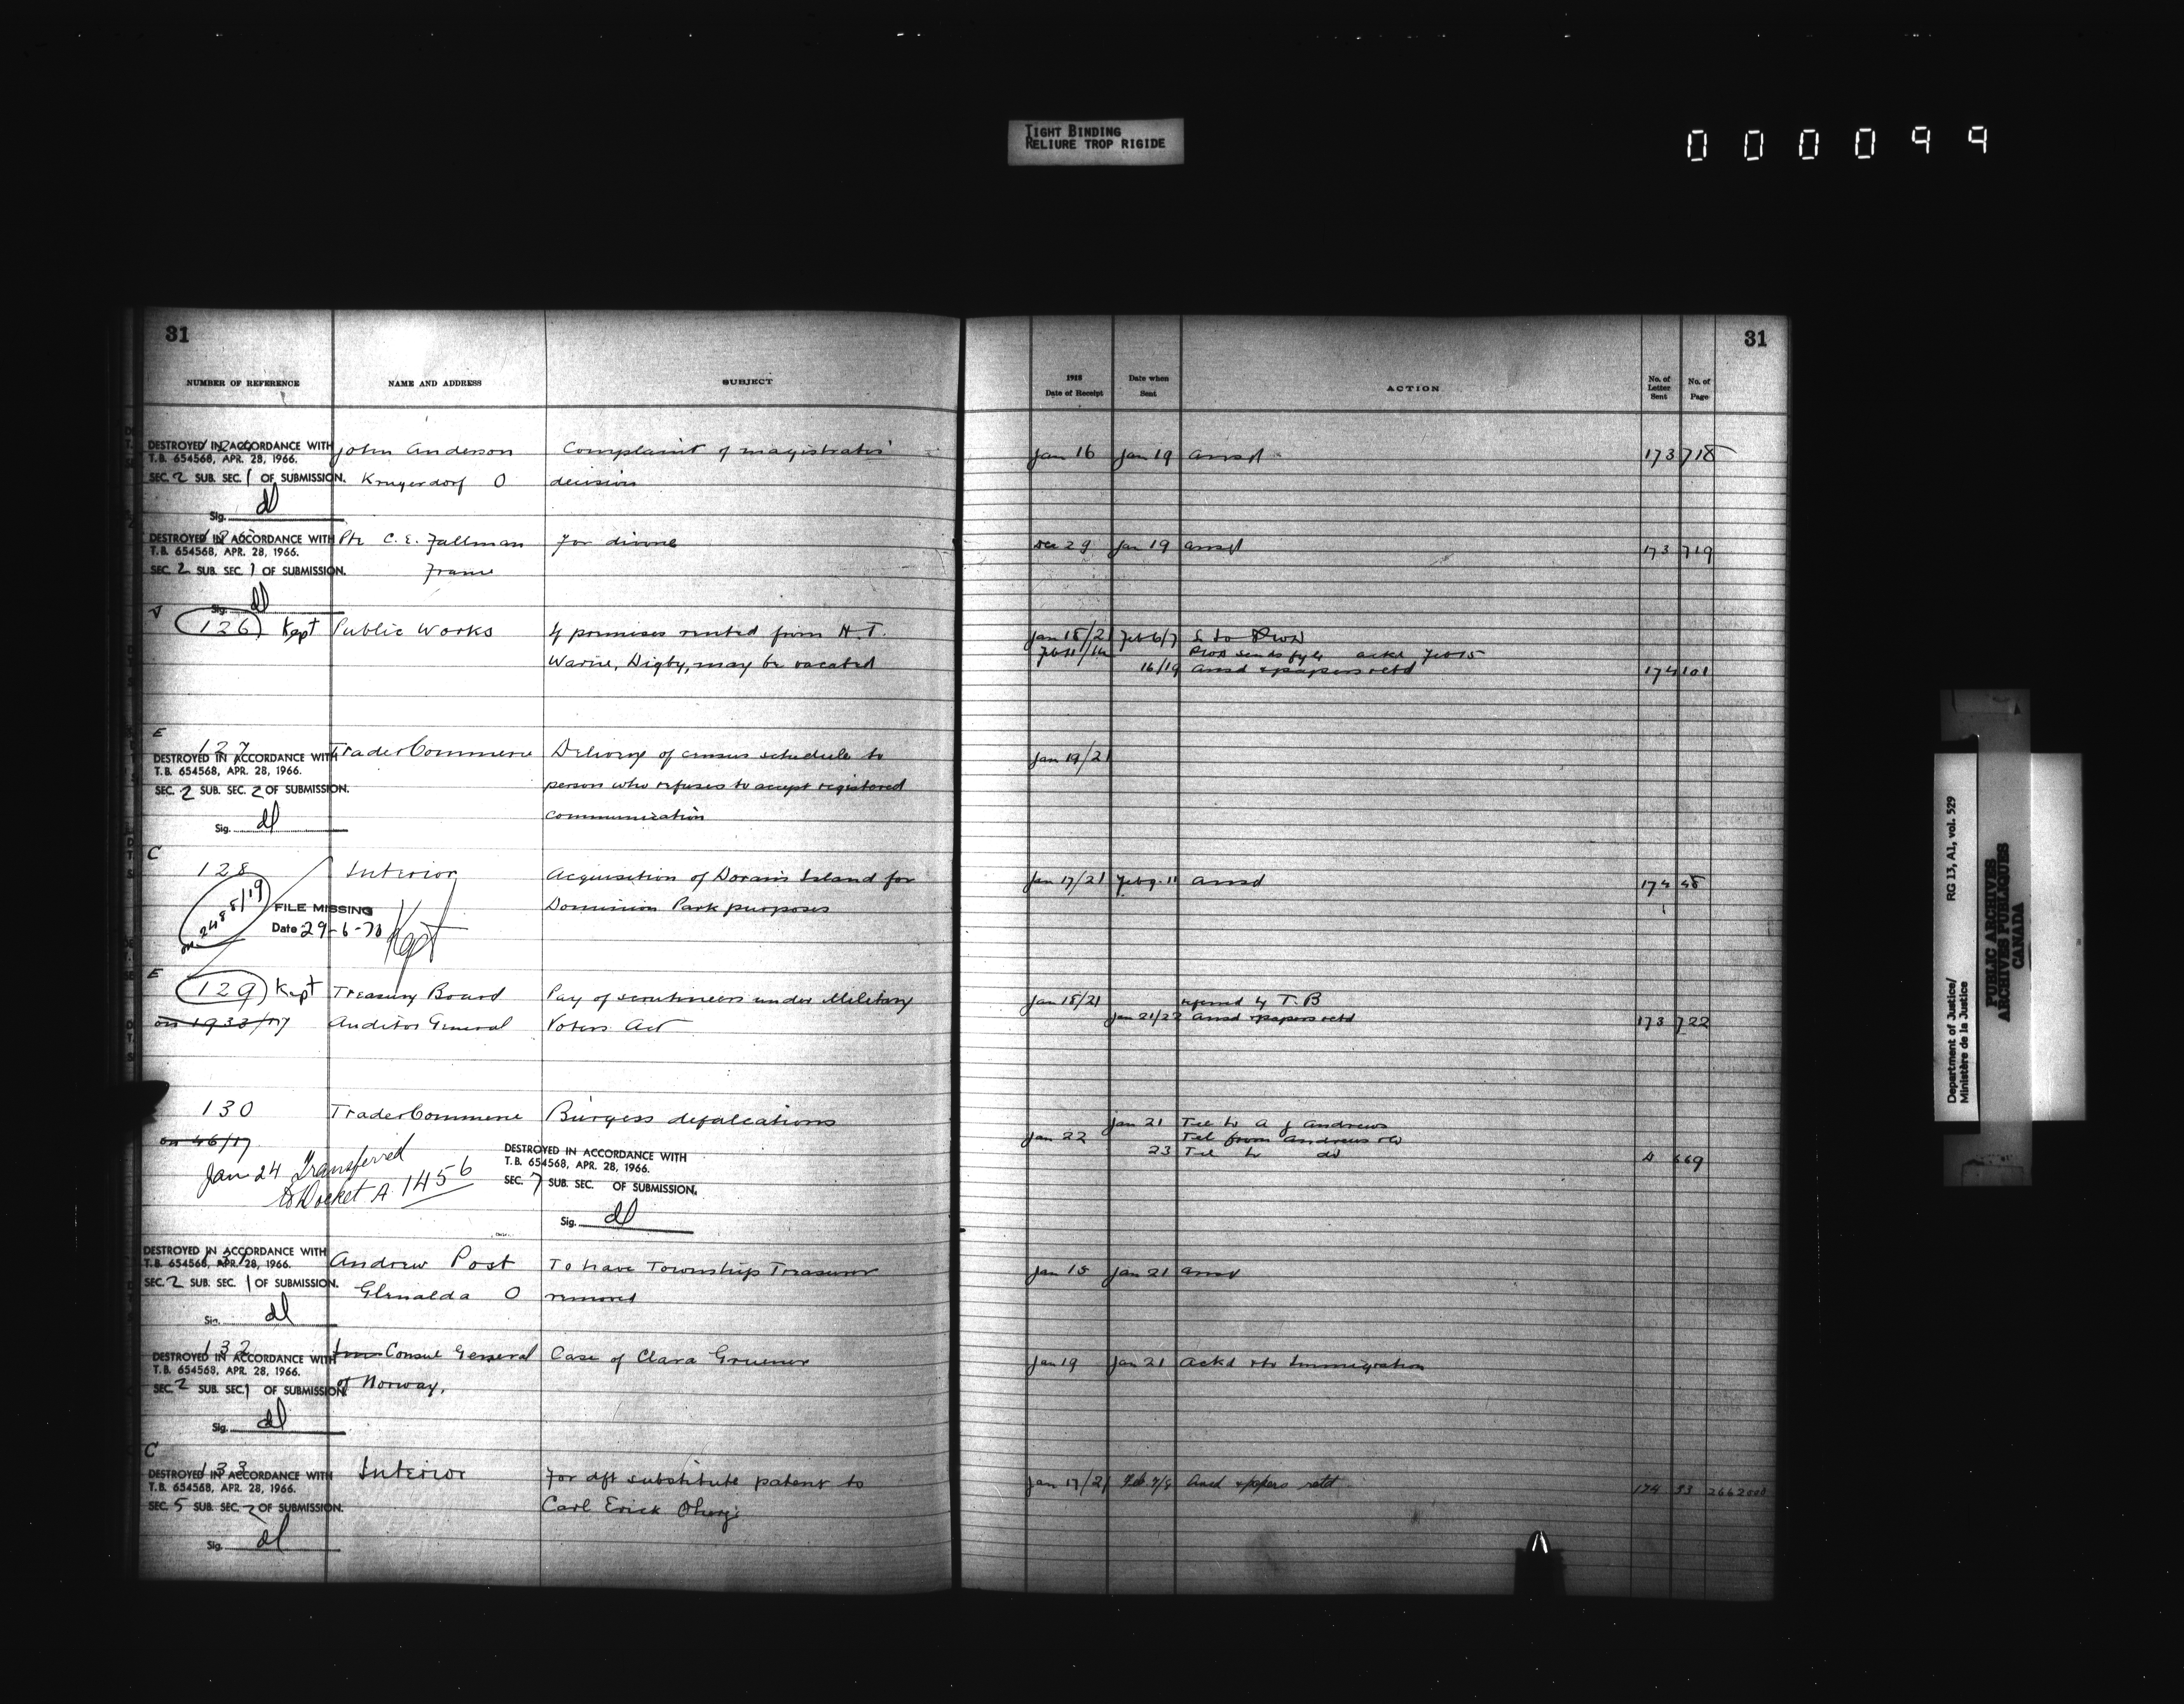 TIGHT BINDING
RELIURE TROP RIGIDE
000099
31
31
NUMBER OF REFERENCE NAME AND ADDRESS SUBJECT
1918
Date of Receipt
Date when
Sent
ACTION
No. of
Letter
Sent
No. of
Page
DESTROYED IN ACCORDANCE WITH John Anderson Complaint of magistrates' Jan 16 Jan 19 ansd 173 718
T.B. 654568, APR. 28, 1966.
SEC. 2 SUB. SEC. 1 OF SUBMISSION. Krugerdorf O decision
Sig. dl
DESTROYED IN ACCORDANCE WITH Pte C. E. Fallman For divorce Dec 29 Jan 19 ansd 173 719
T.B. 654568, APR. 28, 1966.
SEC. 2 SUB. SEC. 1 OF SUBMISSION. France
Sig. dl
V
126 Kept Public Works If premises rented from H. T. Jan 18/21 Feb 6/7
Warne, Digby, may be vacated ackd Feb 15
16/19 ansd & papers retd 174 101
E
127 Trade & Commerce Delivery of census schedule to Jan 19/21
DESTROYED IN ACCORDANCE WITH
T.B. 654568, APR. 28, 1966.
SEC. 2 SUB. SEC. 2 OF SUBMISSION. person who refuses to accept registered
communication
Sig. dl
C
128 Interior Acquisition of Island for Jan 17/21 ansd 174 48
on 2485/19 FILE MISSING Dominion Park purposes
Date 29-6-70 Kept
E
129 Kept Treasury Board Pay of scrutineers under Military Jan 18/21 referred by T. B
on 1933/17 Auditor General Voters Act Jan 21/22 ansd & papers retd 173 722
130 Trade & Commerce Burgess defalcations Jan 21 Tel to A J Andrews
on 46/17 Jan 22 Tel from Andrews
23 Tel to do 669
Jan 24 Transferred
to Docket A 1456
DESTROYED IN ACCORDANCE WITH
T.B. 654568, APR. 28, 1966.
SEC. 7 SUB. SEC. OF SUBMISSION.
Sig. dl
DESTROYED IN ACCORDANCE WITH Andrew Post To have Township Treasurer Jan 18 Jan 21 ansd
T.B. 654568, APR. 28, 1966.
SEC. 2 SUB. SEC. 1 OF SUBMISSION. Glenalda O removed
Sig. dl
132 Consul General Case of Clara Gruener Jan 19 Jan 21 Ackd & to Immigration
DESTROYED IN ACCORDANCE WITH
T.B. 654568, APR. 28, 1966.
SEC. 2 SUB. SEC. 1 OF SUBMISSION. of Norway.
Sig. dl
C
133 Interior For dft substitute patent to Jan 17/21 Feb 7/8 Ansd & papers retd 174 33
DESTROYED IN ACCORDANCE WITH
T.B. 654568, APR. 28, 1966. Carl Erick
SEC. 5 SUB. SEC. 2 OF SUBMISSION.
Sig. dl
Department of Justice/ RG 13, A1, vol. 529
Ministère de la Justice
PUBLIC ARCHIVES
ARCHIVES PUBLIQUES
CANADA